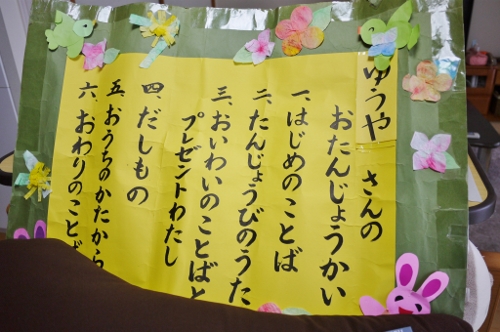 ゆうや さんの
おたんじょうかい
一、はじめのことば
二、たんじょうびのうた
三、おいわいのことばと
プレゼントわたし
四、だしもの
五、おうちのかたから
六、おわりのことば